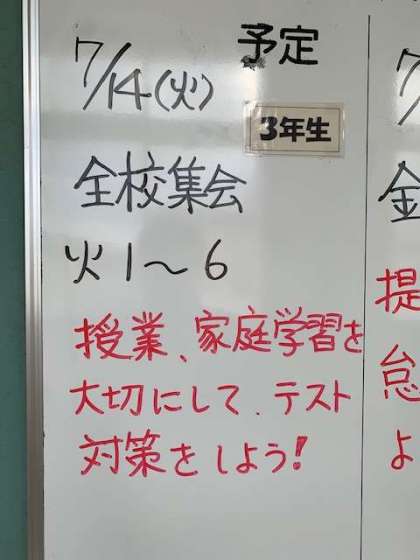 予定
7/14(火)
3年生
全校集会
火1〜6
授業、家庭学習を
大切にして、テスト
対策をしよう!
7/
金
提
怠
よ